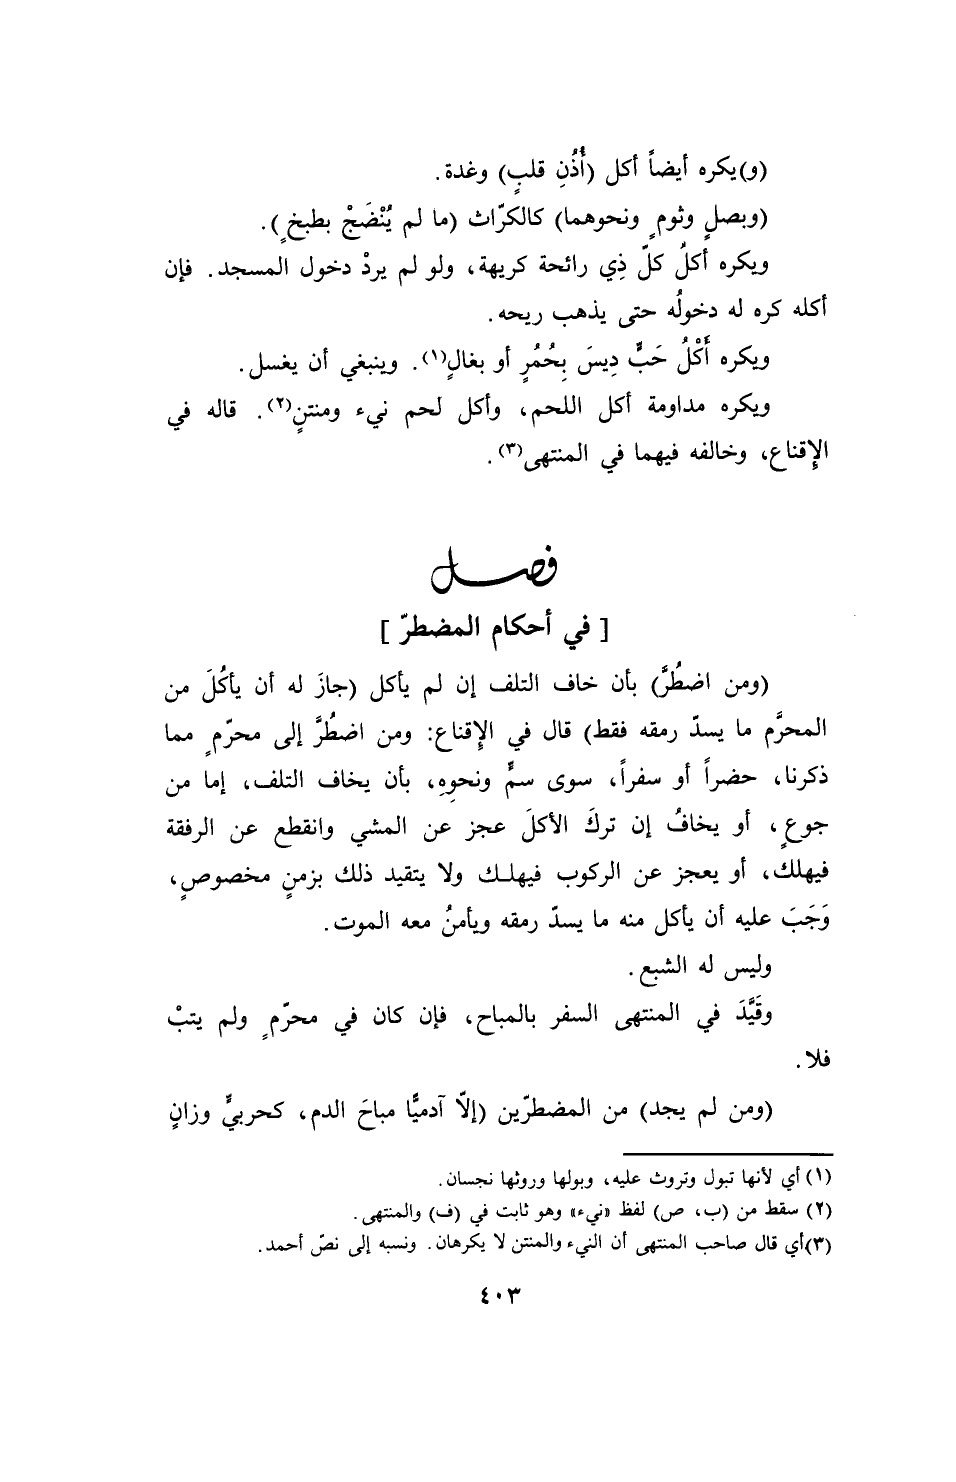 (و)يكره أيضاً أكل (أُذُنِ قلبٍ) وغدة.
(وبصلٍ وثومٍ ونحوهما) كالكرّاث (ما لم يُنْضَجْ بطبخٍ).
ويكره أكلُ كلّ ذِي رائحة كريهة، ولو لم يردْ دخول المسجد. فإن
أكله كره له دخولُه حتى يذهب ريحه.
ويكره أَكْلُ حَبٍّ دِيسَ بِحُمُرٍ أو بغالٍ(١). وينبغي أن يغسل.
ويكره مداومة أكل اللحم، وأكل لحم نيء ومنتنٍ(٢). قاله في
الإِقناع، وخالفه فيهما في المنتهى(٣).
فصل
[ في أحكام المضطرّ ]
(ومن اضطُرَّ) بأن خاف التلف إن لم يأكل (جازَ له أن يأكُلَ من
المحرَّم ما يسدّ رمقه فقط) قال في الإِقناع: ومن اضطُرَّ إلى محرّمٍ مما
ذكرنا، حضراً أو سفراً، سوى سمٍّ ونحوِهِ، بأن يخاف التلف، إما من
جوعٍ، أو يخافُ إن تركَ الأكلَ عجز عن المشي وانقطع عن الرفقة
فيهلك، أو يعجز عن الركوب فيهلك ولا يتقيد ذلك بزمنٍ مخصوصٍ،
وَجَبَ عليه أن يأكل منه ما يسدّ رمقه ويأمنُ معه الموت.
وليس له الشبع.
وقَيَّدَ في المنتهى السفر بالمباح، فإن كان في محرّمٍ ولم يتبْ
فلا.
(ومن لم يجد) من المضطرّين (إلّا آدميًّا مباحَ الدم، كحربيٍّ وزانٍ
(١) أي لأنها تبول وتروث عليه، وبولها وروثها نجسان.
(٢) سقط من (ب، ص) لفظ «نيء» وهو ثابت في (ف) والمنتهى.
(٣)أي قال صاحب المنتهى أن النيء والمنتن لا يكرهان. ونسبه إلى نصّ أحمد.
٤٠٣